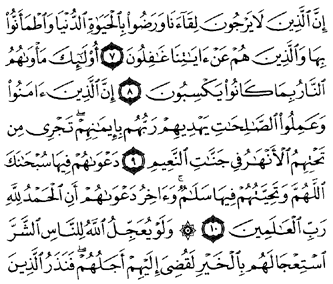 إِنَّ ٱلَّذِينَ لَا يَرْجُونَ لِقَآءَنَا وَرَضُوا۟ بِٱلْحَيَوٰةِ ٱلدُّنْيَا وَٱطْمَأَنُّوا۟
بِهَا وَٱلَّذِينَ هُمْ عَنْ ءَايَـٰتِنَا غَـٰفِلُونَ ٧ أُو۟لَـٰٓئِكَ مَأْوَىٰهُمُ
ٱلنَّارُ بِمَا كَانُوا۟ يَكْسِبُونَ ٨ إِنَّ ٱلَّذِينَ ءَامَنُوا۟
وَعَمِلُوا۟ ٱلصَّـٰلِحَـٰتِ يَهْدِيهِمْ رَبُّهُم بِإِيمَـٰنِهِمْ ۖ تَجْرِى مِن
تَحْتِهِمُ ٱلْأَنْهَـٰرُ فِى جَنَّـٰتِ ٱلنَّعِيمِ ٩ دَعْوَىٰهُمْ فِيهَا سُبْحَـٰنَكَ
ٱللَّهُمَّ وَتَحِيَّتُهُمْ فِيهَا سَلَـٰمٌ ۚ وَءَاخِرُ دَعْوَىٰهُمْ أَنِ ٱلْحَمْدُ لِلَّهِ
رَبِّ ٱلْعَـٰلَمِينَ ١٠ ۞ وَلَوْ يُعَجِّلُ ٱللَّهُ لِلنَّاسِ ٱلشَّرَّ
ٱسْتِعْجَالَهُم بِٱلْخَيْرِ لَقُضِىَ إِلَيْهِمْ أَجَلُهُمْ ۖ فَنَذَرُ ٱلَّذِينَ